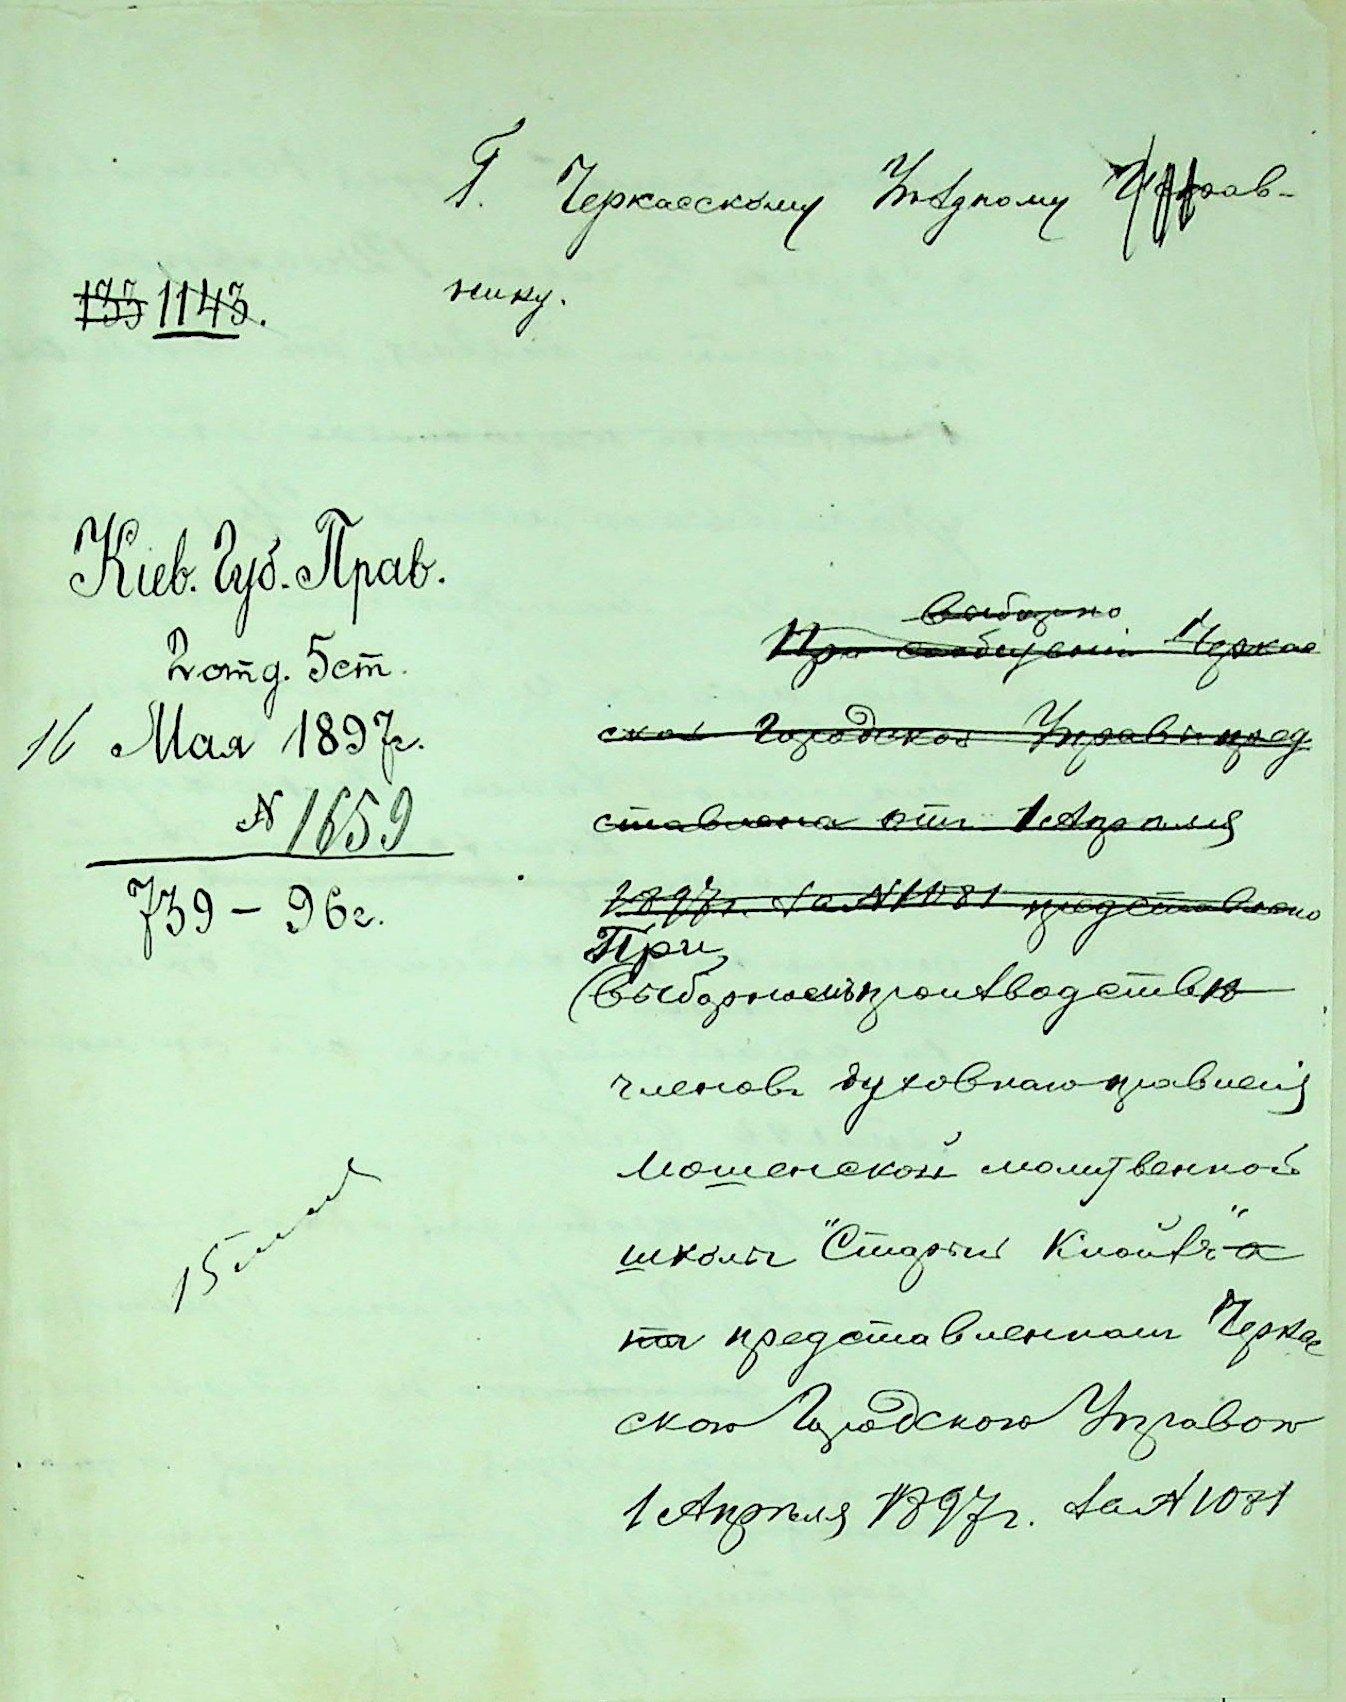 Г. Черкасскому Уѣздному Исправ-
нику.
133 1143.
Кіев. Губ. Прав.
2 отд. 5 ст.
16 Мая 1897 г.
№ 1659
739 – 96 г.
выборно
При сообщеніи Черкас
ской Городской Управы пред
ставлена отъ 1 Апрѣля
1897 г. за № 1081 представлено
При
(выборномъ производствѣ
членовъ духовнаго правленія
Мошенской молитвенной
школы "Старый Клойзъ" а
представленномъ Черкас
скою Городскою Управою
1 Апрѣля 1897 г. за № 1081